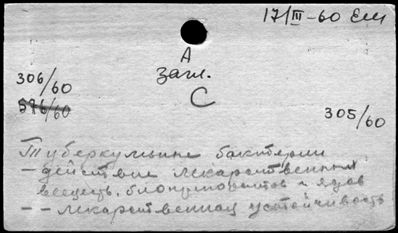 17/III-60 Ем
А
загл.
С
306/60
576/60
305/60
Туберкулезные бактерии
- действие лекарственных
веществ, биопрепаратов и ядов
- - лекарственная устойчивость